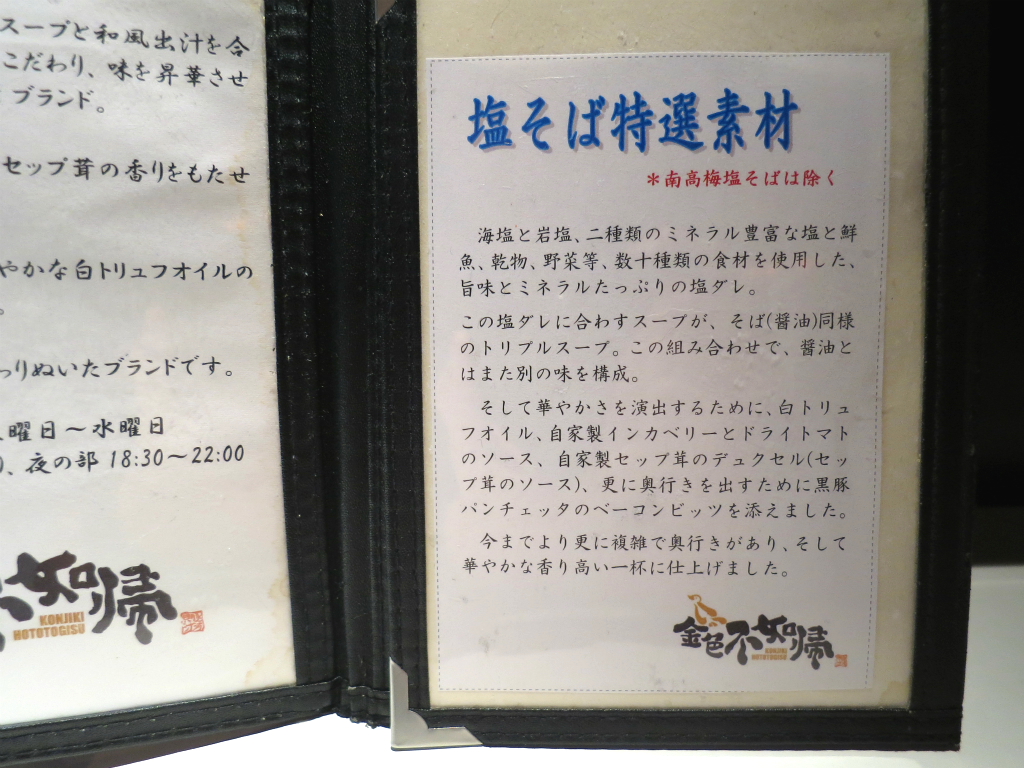 スープと和風出汁を合
こだわり、味を昇華させ
ブランド。
セップ茸の香りをもたせ
やかな白トリュフオイルの
。
りぬいたブランドです。
曜日～水曜日
、夜の部 18:30～22:00
不如帰
KONJIKI
HOTOTOGISU
塩そば特選素材
＊南高梅塩そばは除く
海塩と岩塩、二種類のミネラル豊富な塩と鮮
魚、乾物、野菜等、数十種類の食材を使用した、
旨味とミネラルたっぷりの塩ダレ。
この塩ダレに合わすスープが、そば(醤油)同様
のトリプルスープ。この組み合わせで、醤油と
はまた別の味を構成。
そして華やかさを演出するために、白トリュ
フオイル、自家製インカベリーとドライトマト
のソース、自家製セップ茸のデュクセル(セッ
プ茸のソース)、更に奥行きを出すために黒豚
パンチェッタのベーコンビッツを添えました。
今までより更に複雑で奥行きがあり、そして
華やかな香り高い一杯に仕上げました。
金色不如帰
KONJIKI
HOTOTOGISU